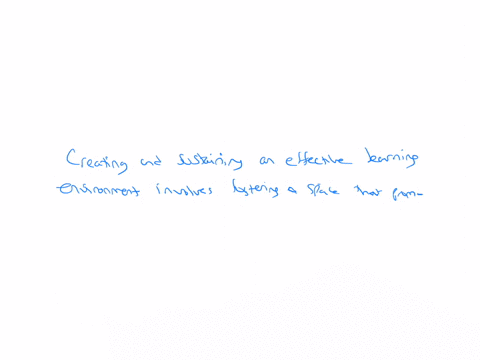 Creating and sustaining an effective learning
environment involves fostering a space that prom-